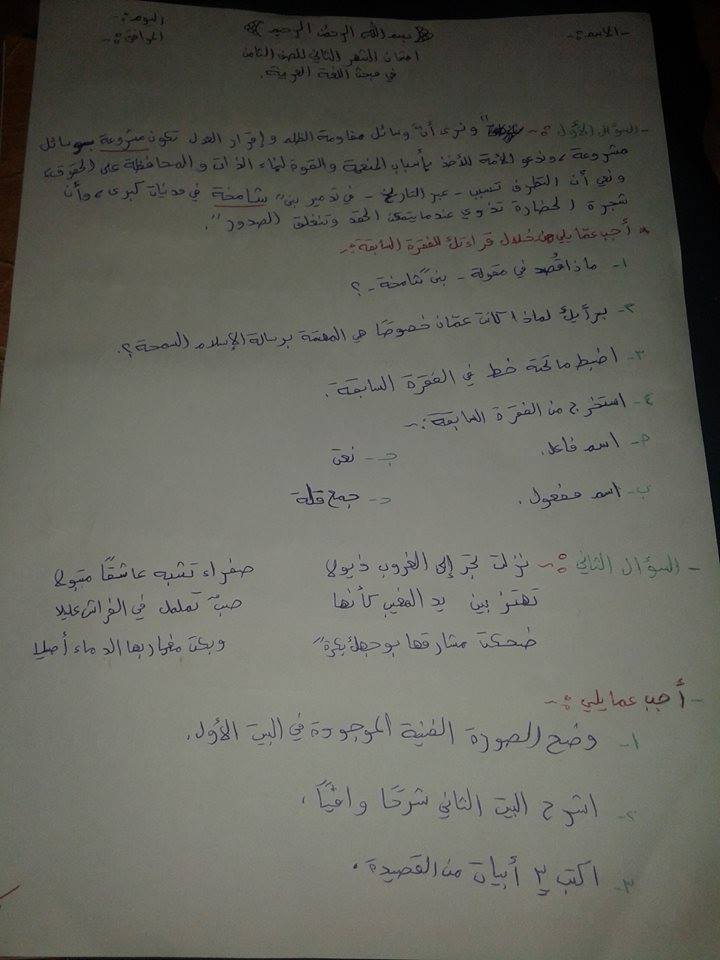 بسم الله الرحمن الرحيم
الاسم :-
اليوم :-
الموافق :-
امتحان الشهر الثاني للصف الثامن
في مبحث اللغة العربية.
- السؤال الأول :- "ونرى أن وسائل مقاومة الظلم وإقرار العدل تكون مشروعة بوسائل
مشروعة، وندعو الأمة للأخذ بأسباب المنعة والقوة لبناء الذات والمحافظة على الحقوق،
ونعي أن التطرف تسبب - عبر التاريخ - في تدمير بنىً شامخة في مدنيات كبرى، وأن
شجرة الحضارة تذوي عندما يتمكن الحقد وتنغلق الصدور".
* أجب عما يلي من خلال قراءتك للفقرة السابقة :-
١- ماذا قُصد في مقولة - بنىً شامخة - ؟
٢- برأيك لماذا كانت عمّان خصوصًا هي المهتمة برسالة الإسلام السمحة ؟.
٣- اضبط ما تحته خط في الفقرة السابقة.
٤- استخرج من الفقرة السابقة :-
أ- اسم فاعل. جـ- نعت
ب- اسم مفعول. د- جمع قلة
- السؤال الثاني :- نزلت تجرّ إلى الغروب ذيولا صفراء تشبه عاشقًا متبولا
تهتز بين يد المغيب كأنها صبٌّ تململ في الفراش عليلا
ضحكت مشارقها بوجهك بكرةً وبكت مغاربها الدماء أصيلا
- أجب عما يلي :-
١- وضح الصورة الفنية الموجودة في البيت الأول.
٢- اشرح البيت الثاني شرحًا وافيًا.
٣- اكتب ٣ أبيات من القصيدة.